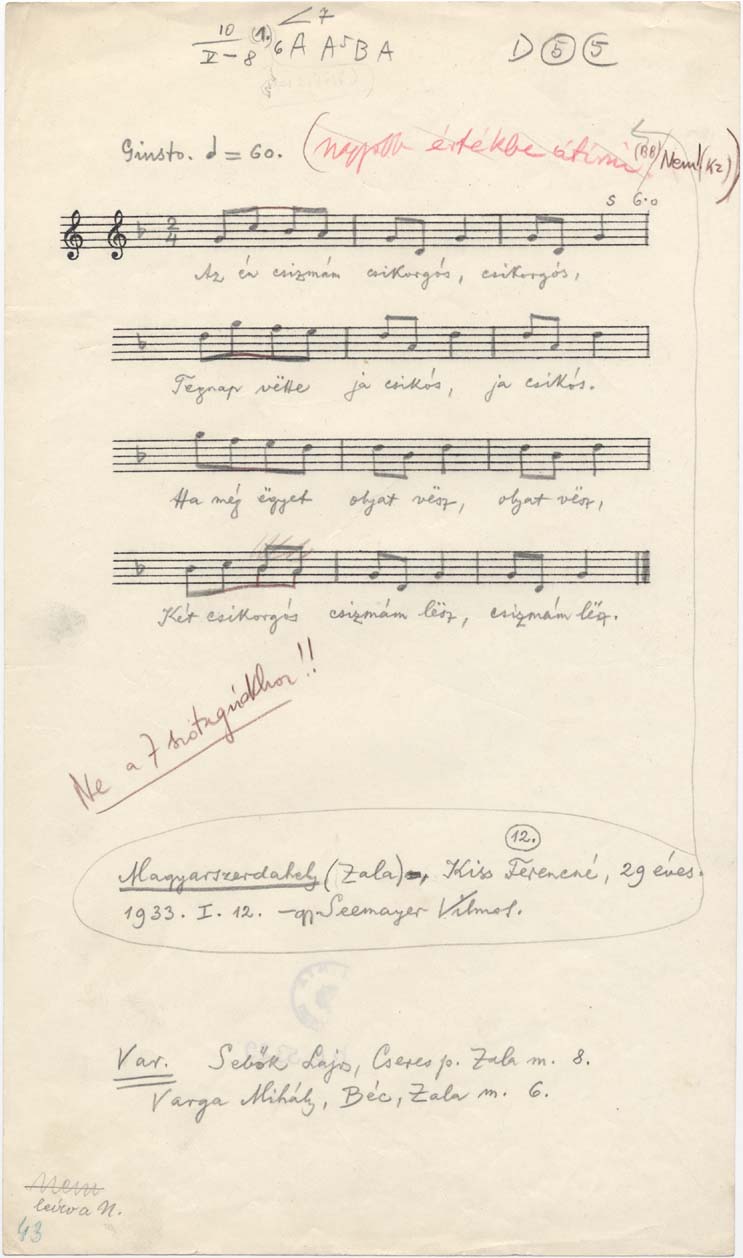 10 (1.) < 7
V – 8 6A A5 B A D 5 5
Giusto. = 60. (nagyobb értékbe átírni (BB) Nem! (Kz))
s 6.o
2
4
Az én csizmám csikorgós, csikorgós,
Tegnap vëtte ja csikós, ja csikós.
Ha még ëgyet olyat vësz, olyat vësz,
Két csikorgós csizmám lësz, csizmám lësz.
Ne a 7 szótagúakhoz!!
12.
Magyarszerdahely (Zala), Kiss Ferencné, 29 éves.
1933. I. 12. – gy. Seemayer Vilmos.
Var. Sebők Lajos, Cseres p. Zala m. 8.
Varga Mihály, Béc, Zala m. 6.
Nem
leírva N.
43